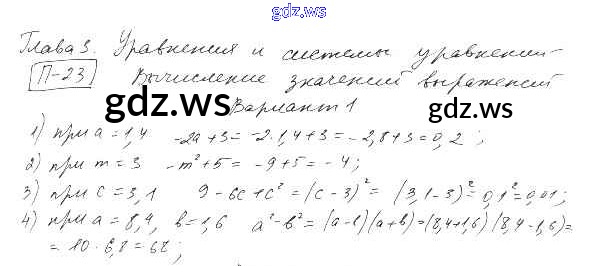 gdz.ws
Глава 3. Уравнения и системы уравнений
П-23 Вычисление значений выражений
gdz.ws gdz.ws
Вариант 1
1) при a = 1,4 -2a+3 = -2·1,4+3 = -2,8+3 = 0,2 ;
2) при m = 3 -m²+5 = -9+5 = -4 ;
3) при c = 3,1 9-6c+c² = (c-3)² = (3,1-3)² = 0,1² = 0,01 ;
4) при a = 8,4, b = 1,6 a²-b² = (a-b)(a+b) = (8,4+1,6)(8,4-1,6) =
= 10·6,8 = 68 ;